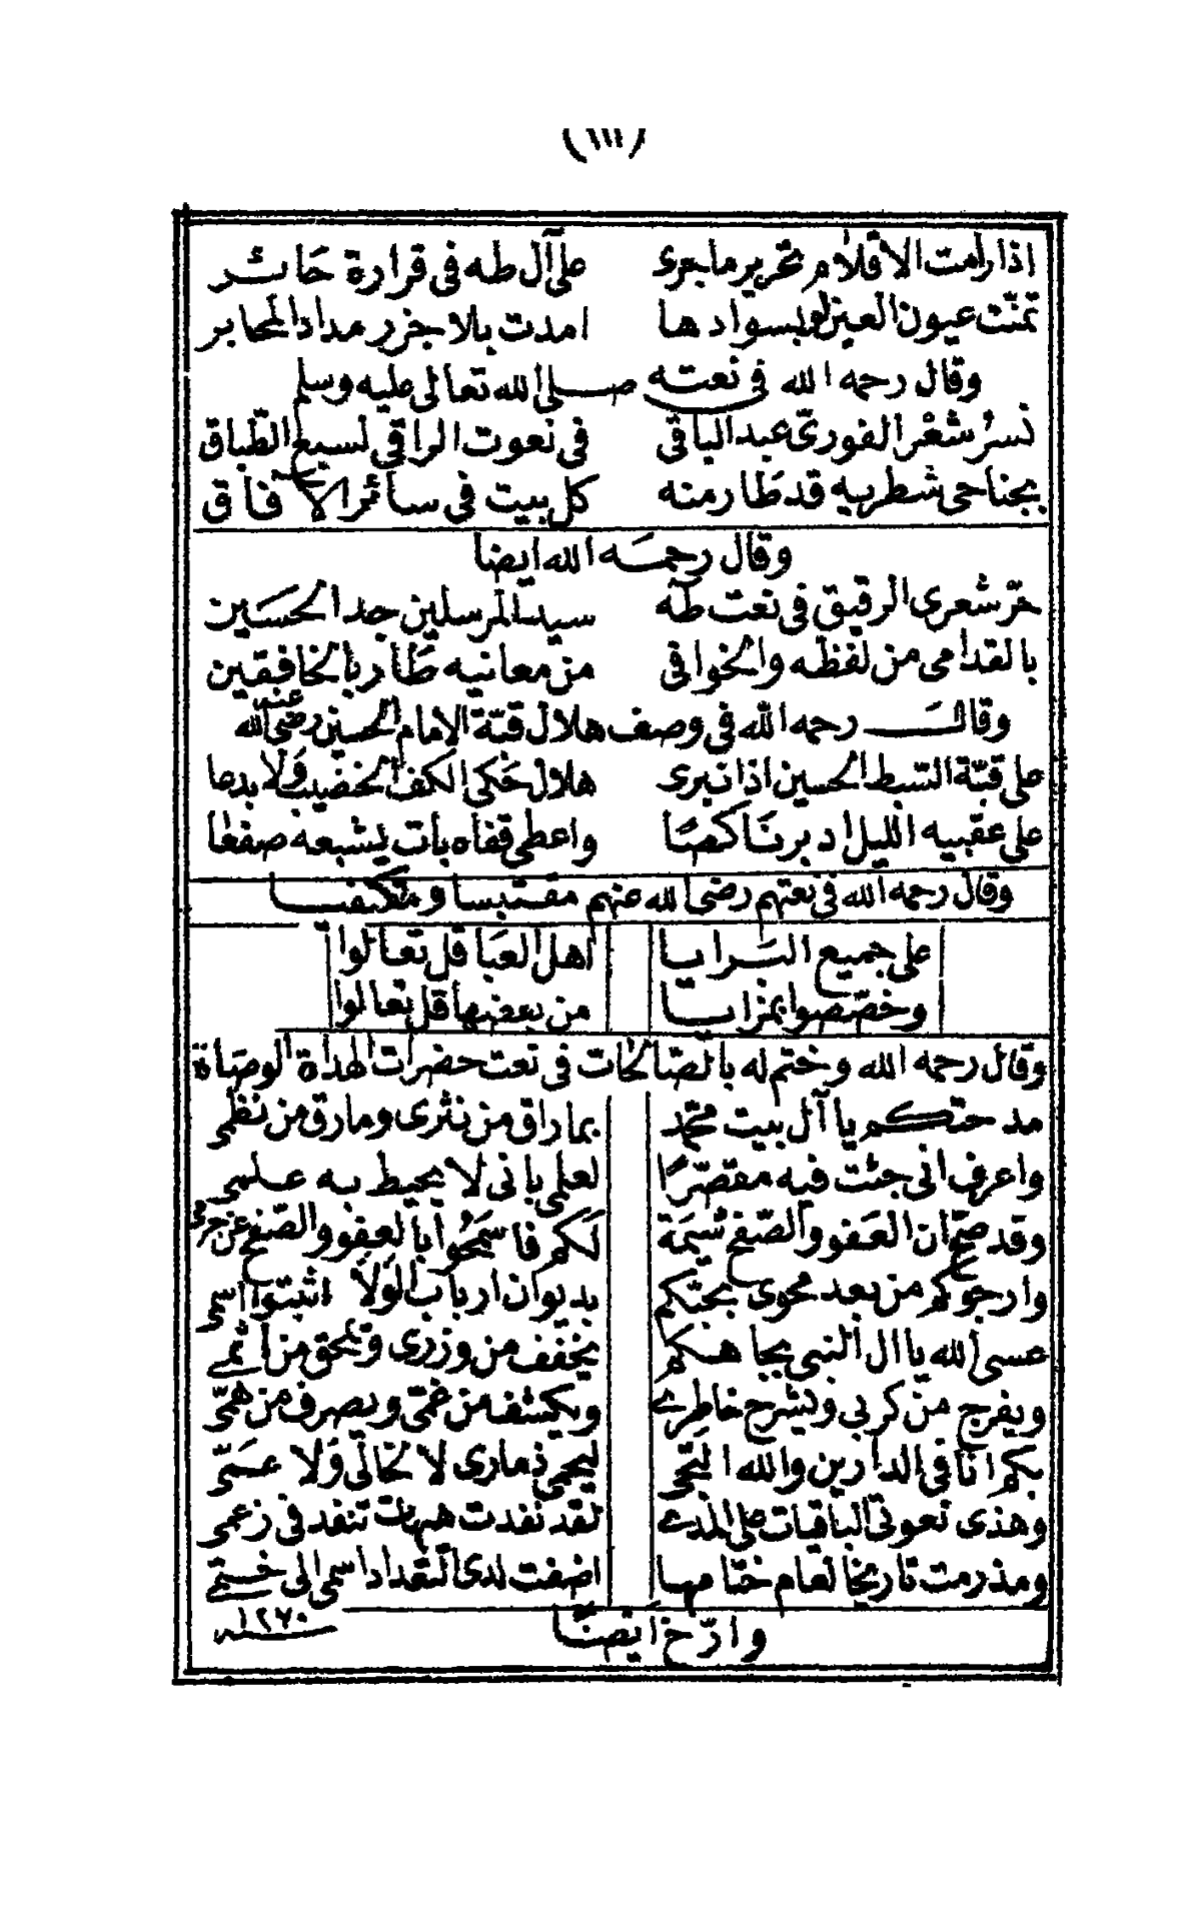 (١١١)
اذا رامت الاقلام تحرير ما جرى على آل طه فى قرارة حائر
تمنّت عيون العين لو بسوادها امدت بلا جزر مداد المحابر
وقال رحمه الله فى نعته صلى الله تعالى عليه وسلم
نسرُ شعْر الفورىّ عبد الباقى فى نعوت الراقى لسبع الطّباق
بجناحى شطريه قد طَار منه كل بيت فى سائر الآفاق
وقال رحمه الله ايضا
حرّ شعرى الرقيق فى نعت طه سيد المرسلين جد الحسَين
بالقدامى من لفظه والخوافى من معانيه طَار بالخافقين
وقال رحمه الله فى وصف هلال قبّة الامام الحسين رضى الله عنه
على قبّة السّبط الحسين اذا نبرى هلال حَكى الكف الخضيب وَلا بدعا
على عقبيه الليل ادبر نَاكصًا واعطى قفاه بات يشبعه صفعا
وقال رحمه الله فى نعتهم رضى الله عنهم مقتبسا ومكتفيا
على جميع البَرايا اهل العبَا قل تعالوا
وخصّصوا بمزايا من بعضها قل تعالوا
وقال رحمه الله وختم له بالصّالحات فى نعت حضرات الهداة الوصَاة
مدحتكم يا آل بيت محمّد بما راق من نثرى وما رق من نظمى
واعرف انى جئت فيه مقصّرًا لعلمى بانى لا يحيط به علمى
وقد صحّ ان العَفو والصّفح شيمَة لَكم فاسمَحُوا بالعفو والصّفح عن جرمى
وارجوكم من بعد محوى بحبّكم بديوان ارباب الوَلا اثبتوا اسمى
عسى الله يا ال النبى بجاهكم يخفف من وزرى ويمحق من أثمى
ويفرج من كربى ويشرح خاطرى ويكشف من غمّى ويصرف من همّى
بكم انا فى الدارين والله التجى ليحمى ذمارى لا بخالى وَلا عَمّى
وهذى نعوتى الباقيات على المدى لقد نفدت هيهات تنفد فى زعمى
ومذ رمت تاريخا لعام ختامها اضفت لدى التعداد اسمى الى ختمى
وارّخ ايضًا ١٢٧٠ سنه